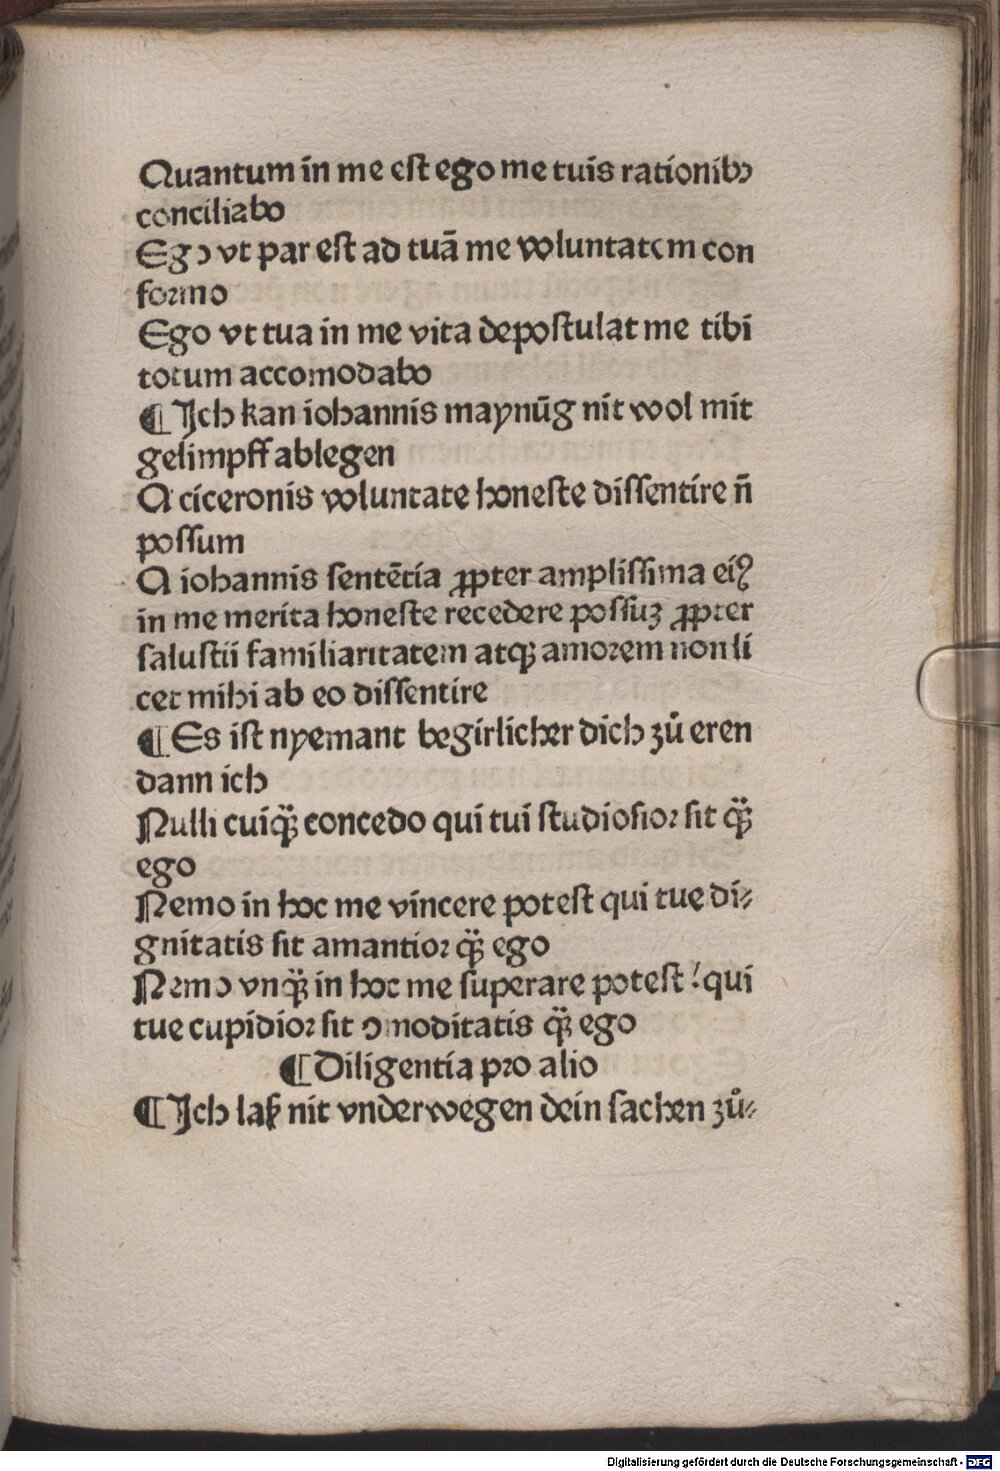 Quantum in me eſt ego me tuis rationibꝰ
conciliabo
Ego vt par eſt ad tuā me voluntatem con
formo
Ego vt tua in me vita depoſtulat me tibi
totum accomodabo
¶ Jch kan iohannis maynūg nit wol mit
gelimpff ablegen
A ciceronis voluntate honeſte diſſentire n̄
poſſum
A iohannis ſentētia ꝓpter ampliſſima eiꝰ
in me merita honeſte recedere poſſuꝫ ꝓpter
ſaluſtii familiaritatem atqꝫ amorem non li
cet mihi ab eo diſſentire
¶ Es iſt nyemant begirlicher dich zů eren
dann ich
Nulli cuiqᷓꝫ concedo qui tui ſtudioſior ſit qᷓꝫ
ego
Nemo in hoc me vincere poteſt qui tuę di⸗
gnitatis ſit amantior qᷓꝫ ego
Nemo vnqᷓꝫ in hoc me ſuperare poteſt! qui
tue cupidior ſit ↄmoditatis qᷓꝫ ego
¶ Diligentia pro alio
¶ Jch laß nit vnderwegen dein ſachen zů⸗
Digitalisierung gefördert durch die Deutsche Forschungsgemeinschaft - DFG